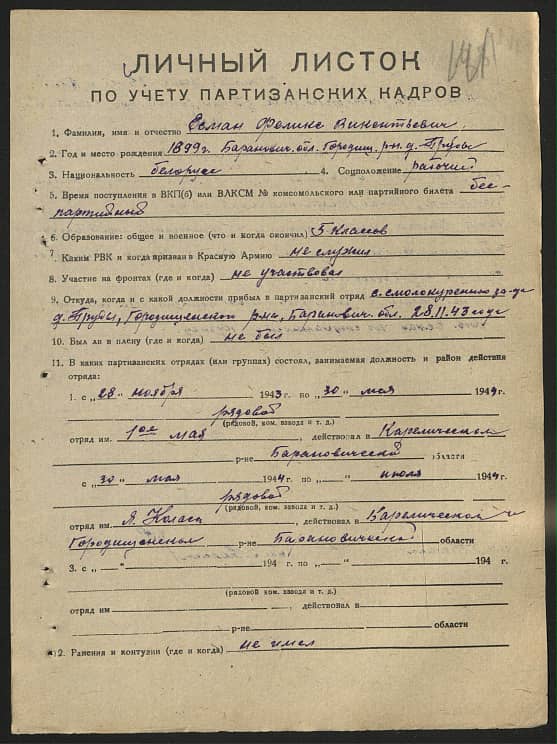 ЛИЧНЫЙ ЛИСТОК
ПО УЧЕТУ ПАРТИЗАНСКИХ КАДРОВ
1. Фамилия, имя и отчество Осман Феликс Викентьевич
2. Год и место рождения 1899 г. Баранович. обл. Городищ. р-н. д. Трубы
3. Национальность белорус 4. Соцположение рабочий
5. Время поступления в ВКП(б) или ВЛКСМ № комсомольского или партийного билета бес-
партийный
6. Образование: общее и военное (что и когда окончил) 5 классов
7. Каким РВК и когда призван в Красную Армию не служил
8. Участие на фронтах (где и когда) не участвовал
9. Откуда, когда и с какой должности прибыл в партизанский отряд с смолокуренню за-да
д. Трубы, Городищенского р-на, Баранович. обл. 28.11.43 года
10. Был ли в плену (где и когда) не был
11. В каких партизанских отрядах (или группах) состоял, занимаемая должность и район действия
отряда:
1. с „28" ноября 1943 г. по „30" мая 1944 г.
рядовой
(рядовой, ком. взвода и т. д.)
отряд им. 1ое мая, действовал в Кареличском
р-не Барановичской области
с „30" мая 1944 г. по „ " июля 1944 г.
рядовой
(рядовой, ком. взвода и т. д.)
отряд им. Я. Коласа, действовал в Кареличском и
Городищенском р-не Барановичской области
3. с „ " 194 г. по „ " 194 г.
(рядовой, ком. взвода и т. д.)
отряд им действовал в
р-не области
2. Ранения и контузии (где и когда) не имел